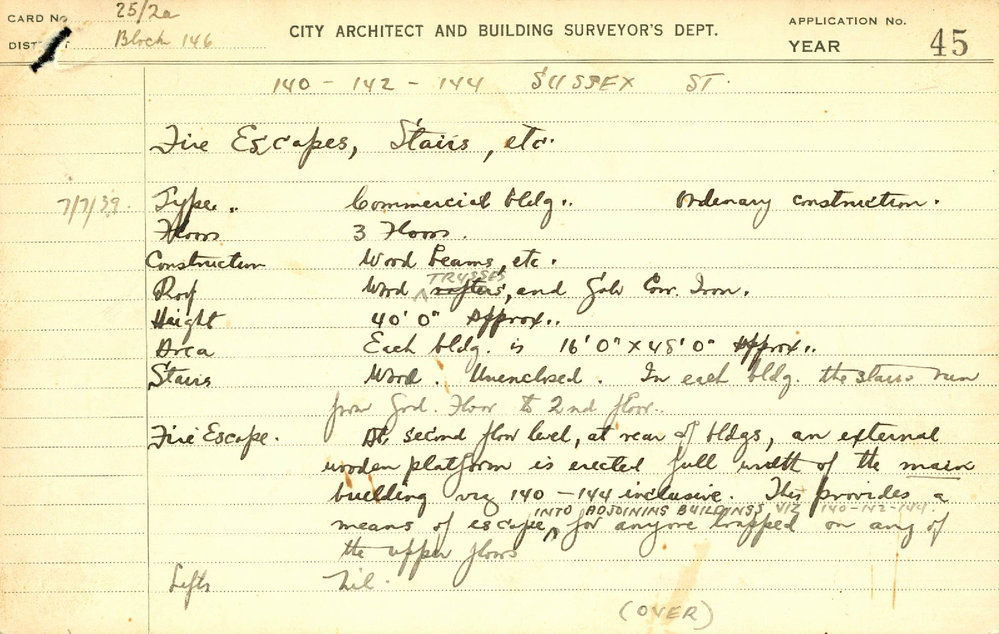 CARD No 25/2a
CITY ARCHITECT AND BUILDING SURVEYOR'S DEPT.
APPLICATION No.
DISTRICT Block 146
YEAR 45
140 - 142 - 144 SUSSEX ST.
Fire Escapes, Stairs, etc.
7/7/39. Type.. Commercial bldg.. Ordenary construction.
Floors 3 Floors.
Construction Wood beams, etc.
TRUSSES
Roof Wood rafters, and Galv Corr. Iron.
Height 40' 0" Approx..
Area Each bldg. is 16' 0" x 48' 0" Approx..
Stairs Wood. Unenclosed. In each bldg. the stairs run
from Grd. Floor to 2nd floor..
Fire Escape. At second floor level, at rear of bldgs, an external
wooden platform is erected full width of the main
building viz 140 - 144 inclusive. This provides a
INTO ADJOINING BUILDINGS VIZ 140-142-144.
means of escape for anyone trapped on any of
the upper floors
Lifts Nil.
(OVER)